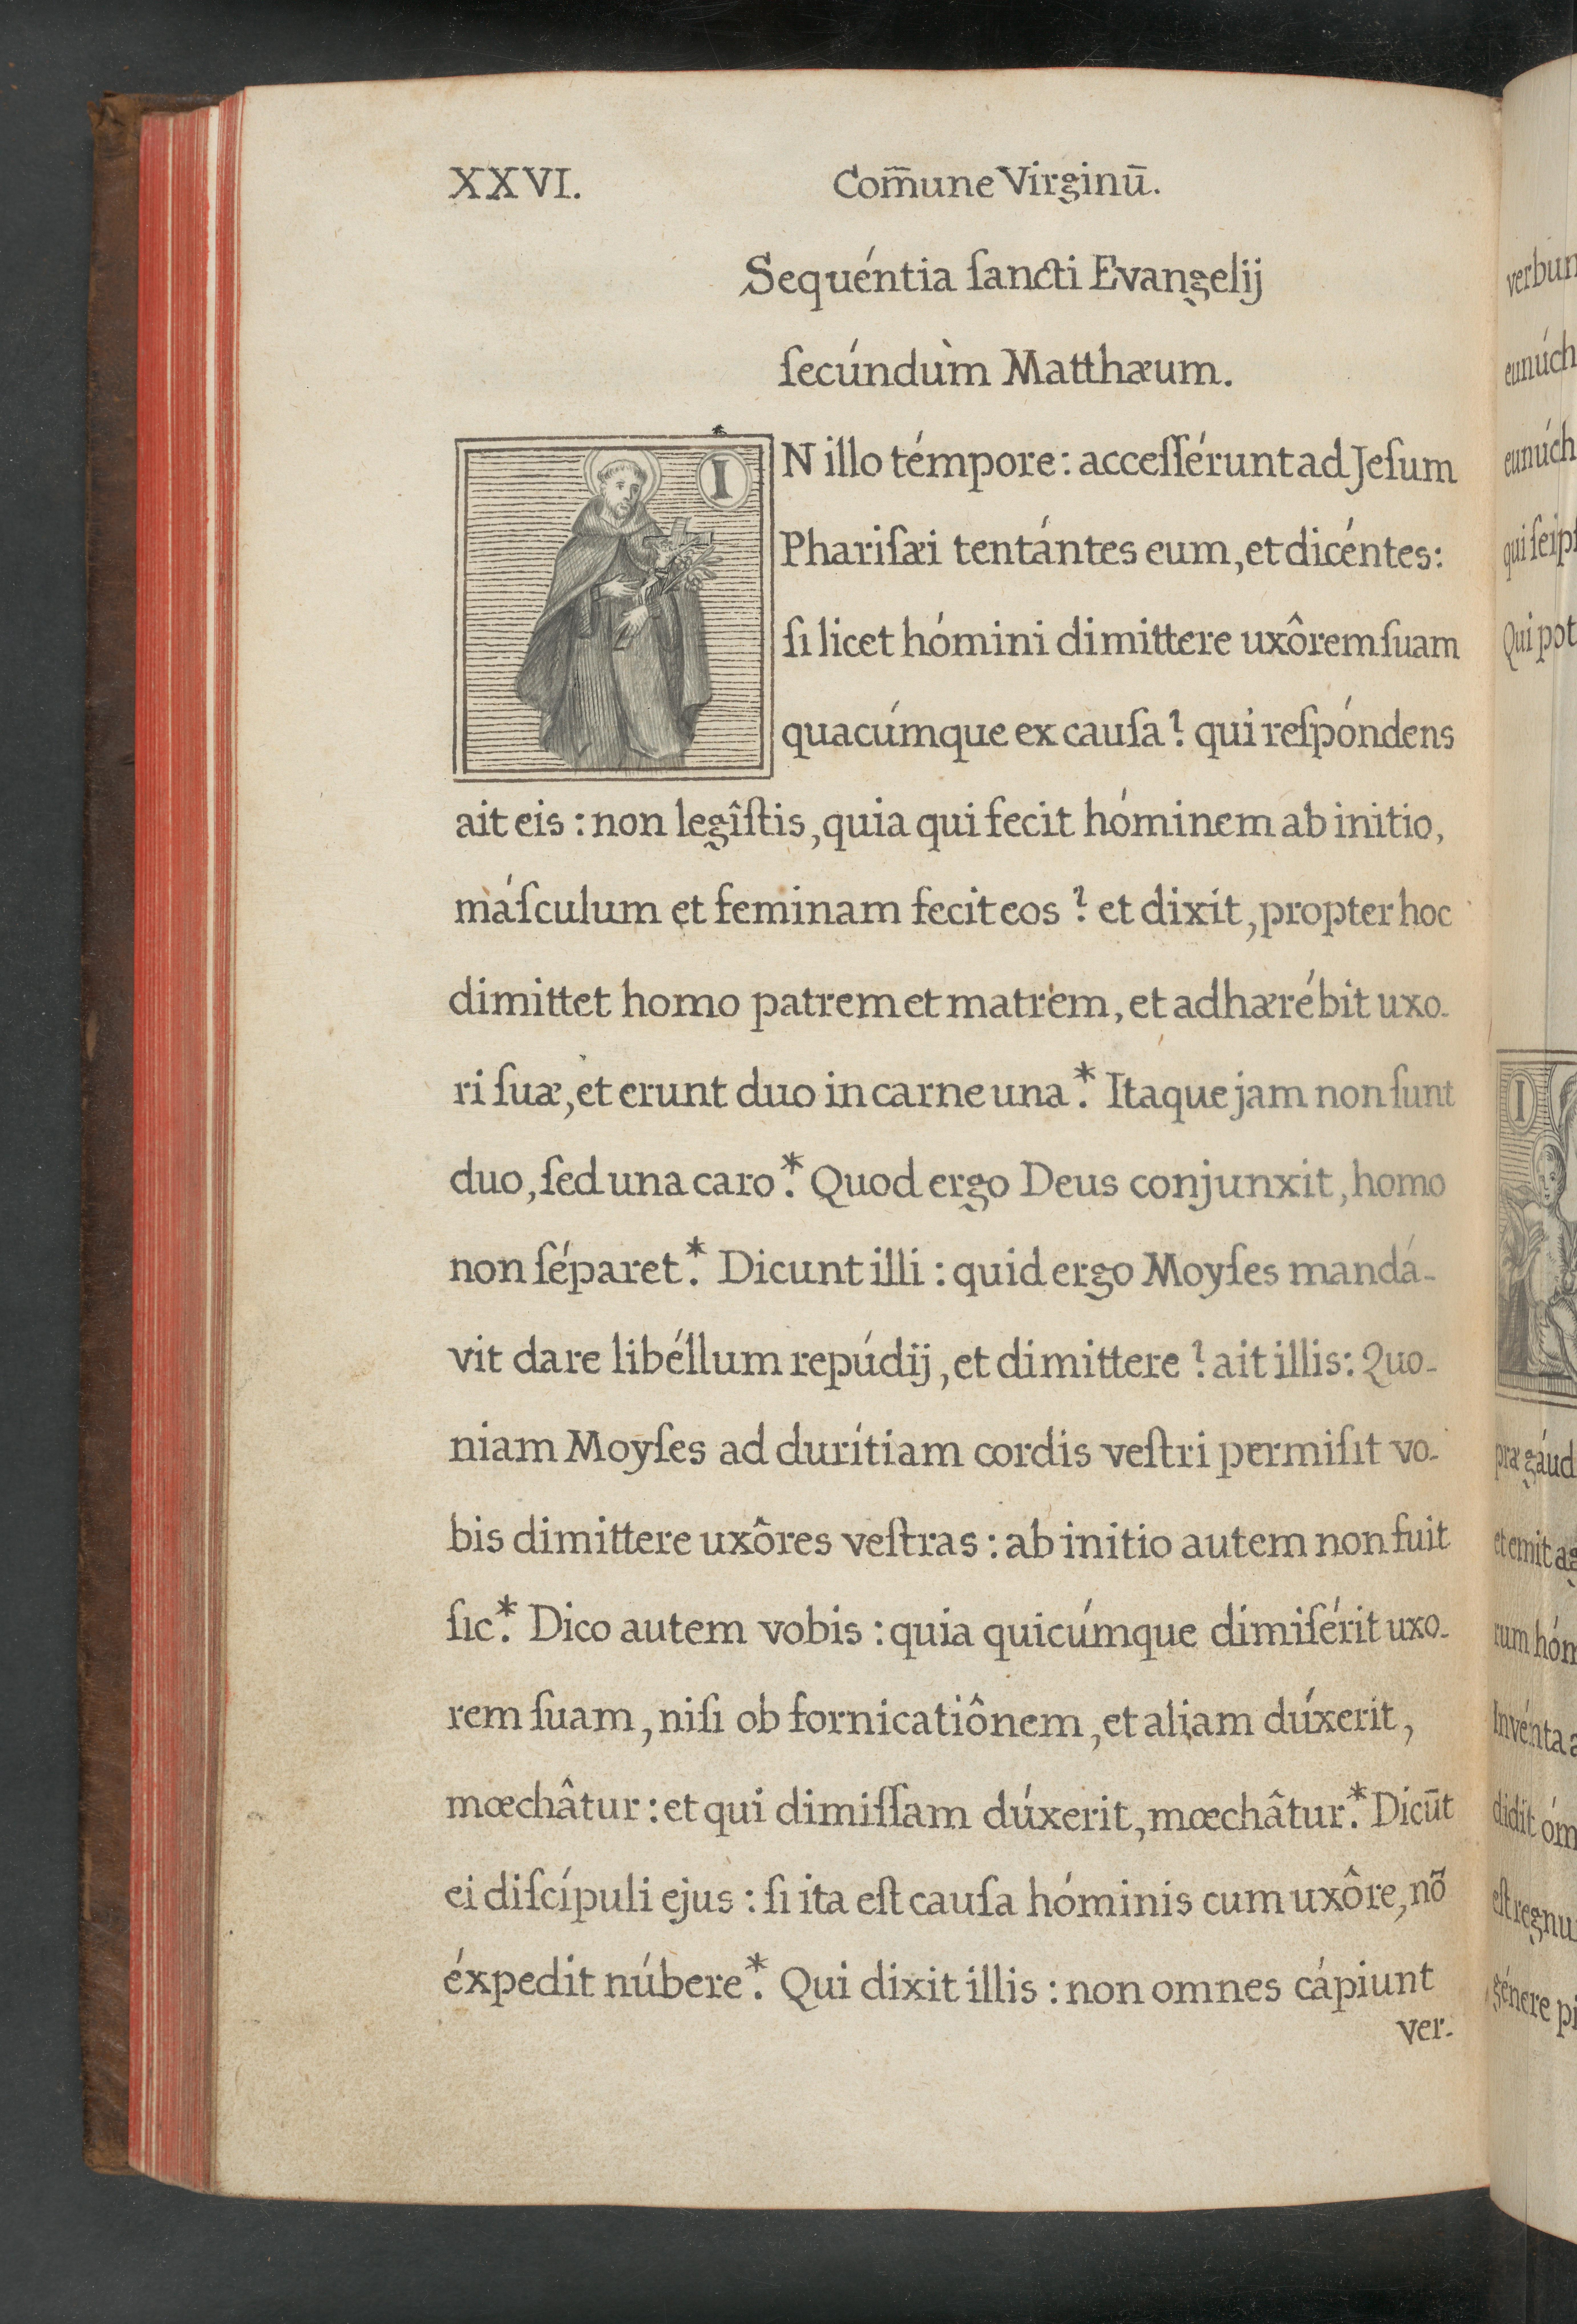 XXVI. Com̄une Virginū.
Sequéntia ſancti Evangelij
ſecúndùm Matthæum.
IN illo témpore: acceſſérunt ad Jeſum
Phariſæi tentántes eum, et dicéntes:
ſi licet hómini dimittere uxôrem ſuam
quacúmque ex cauſa? qui reſpóndens
ait eis: non legîſtis, quia qui fecit hóminem ab initio,
máſculum et feminam fecit eos? et dixit, propter hoc
dimittet homo patrem et matrem, et adhærébit uxo-
ri ſuæ, et erunt duo in carne una.* Itaque jam non ſunt
duo, ſed una caro.* Quod ergo Deus conjunxit, homo
non ſéparet.* Dicunt illi: quid ergo Moyſes mandá-
vit dare libéllum repúdij, et dimittere? ait illis: Quo-
niam Moyſes ad durítiam cordis veſtri permiſit vo-
bis dimittere uxôres veſtras: ab initio autem non fuit
ſic.* Dico autem vobis: quia quicúmque dimiſérit uxo-
rem ſuam, niſi ob fornicatiônem, et aliam dúxerit,
mœchâtur: et qui dimiſſam dúxerit, mœchâtur.* Dicūt
ei diſcípuli ejus: ſi ita eſt cauſa hóminis cum uxôre, nō
éxpedit núbere.* Qui dixit illis: non omnes cápiunt
ver-
verbun
eunúch
eunúch
qui ſeipſ
Qui pot
I
præ gáud
et emit ag
rum hóm
Invénta a
didit óm
eſt regnu
génere pi